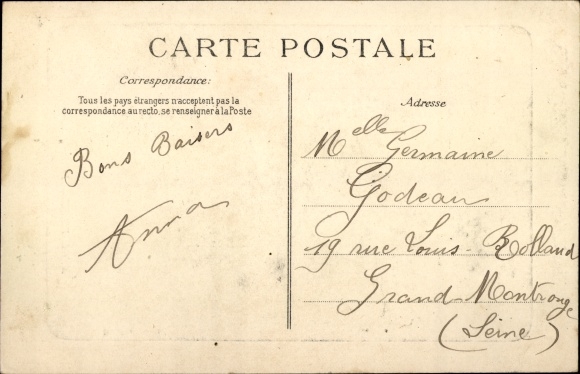 CARTE POSTALE
Correspondance:
Tous les pays étrangers n'acceptent pas la
correspondance au recto, se renseigner à la Poste
Bons Baisers
Anna
Adresse
Melle Germaine
Godeau
19 rue Louis-Rolland
Grand-Montrouge
(Seine)